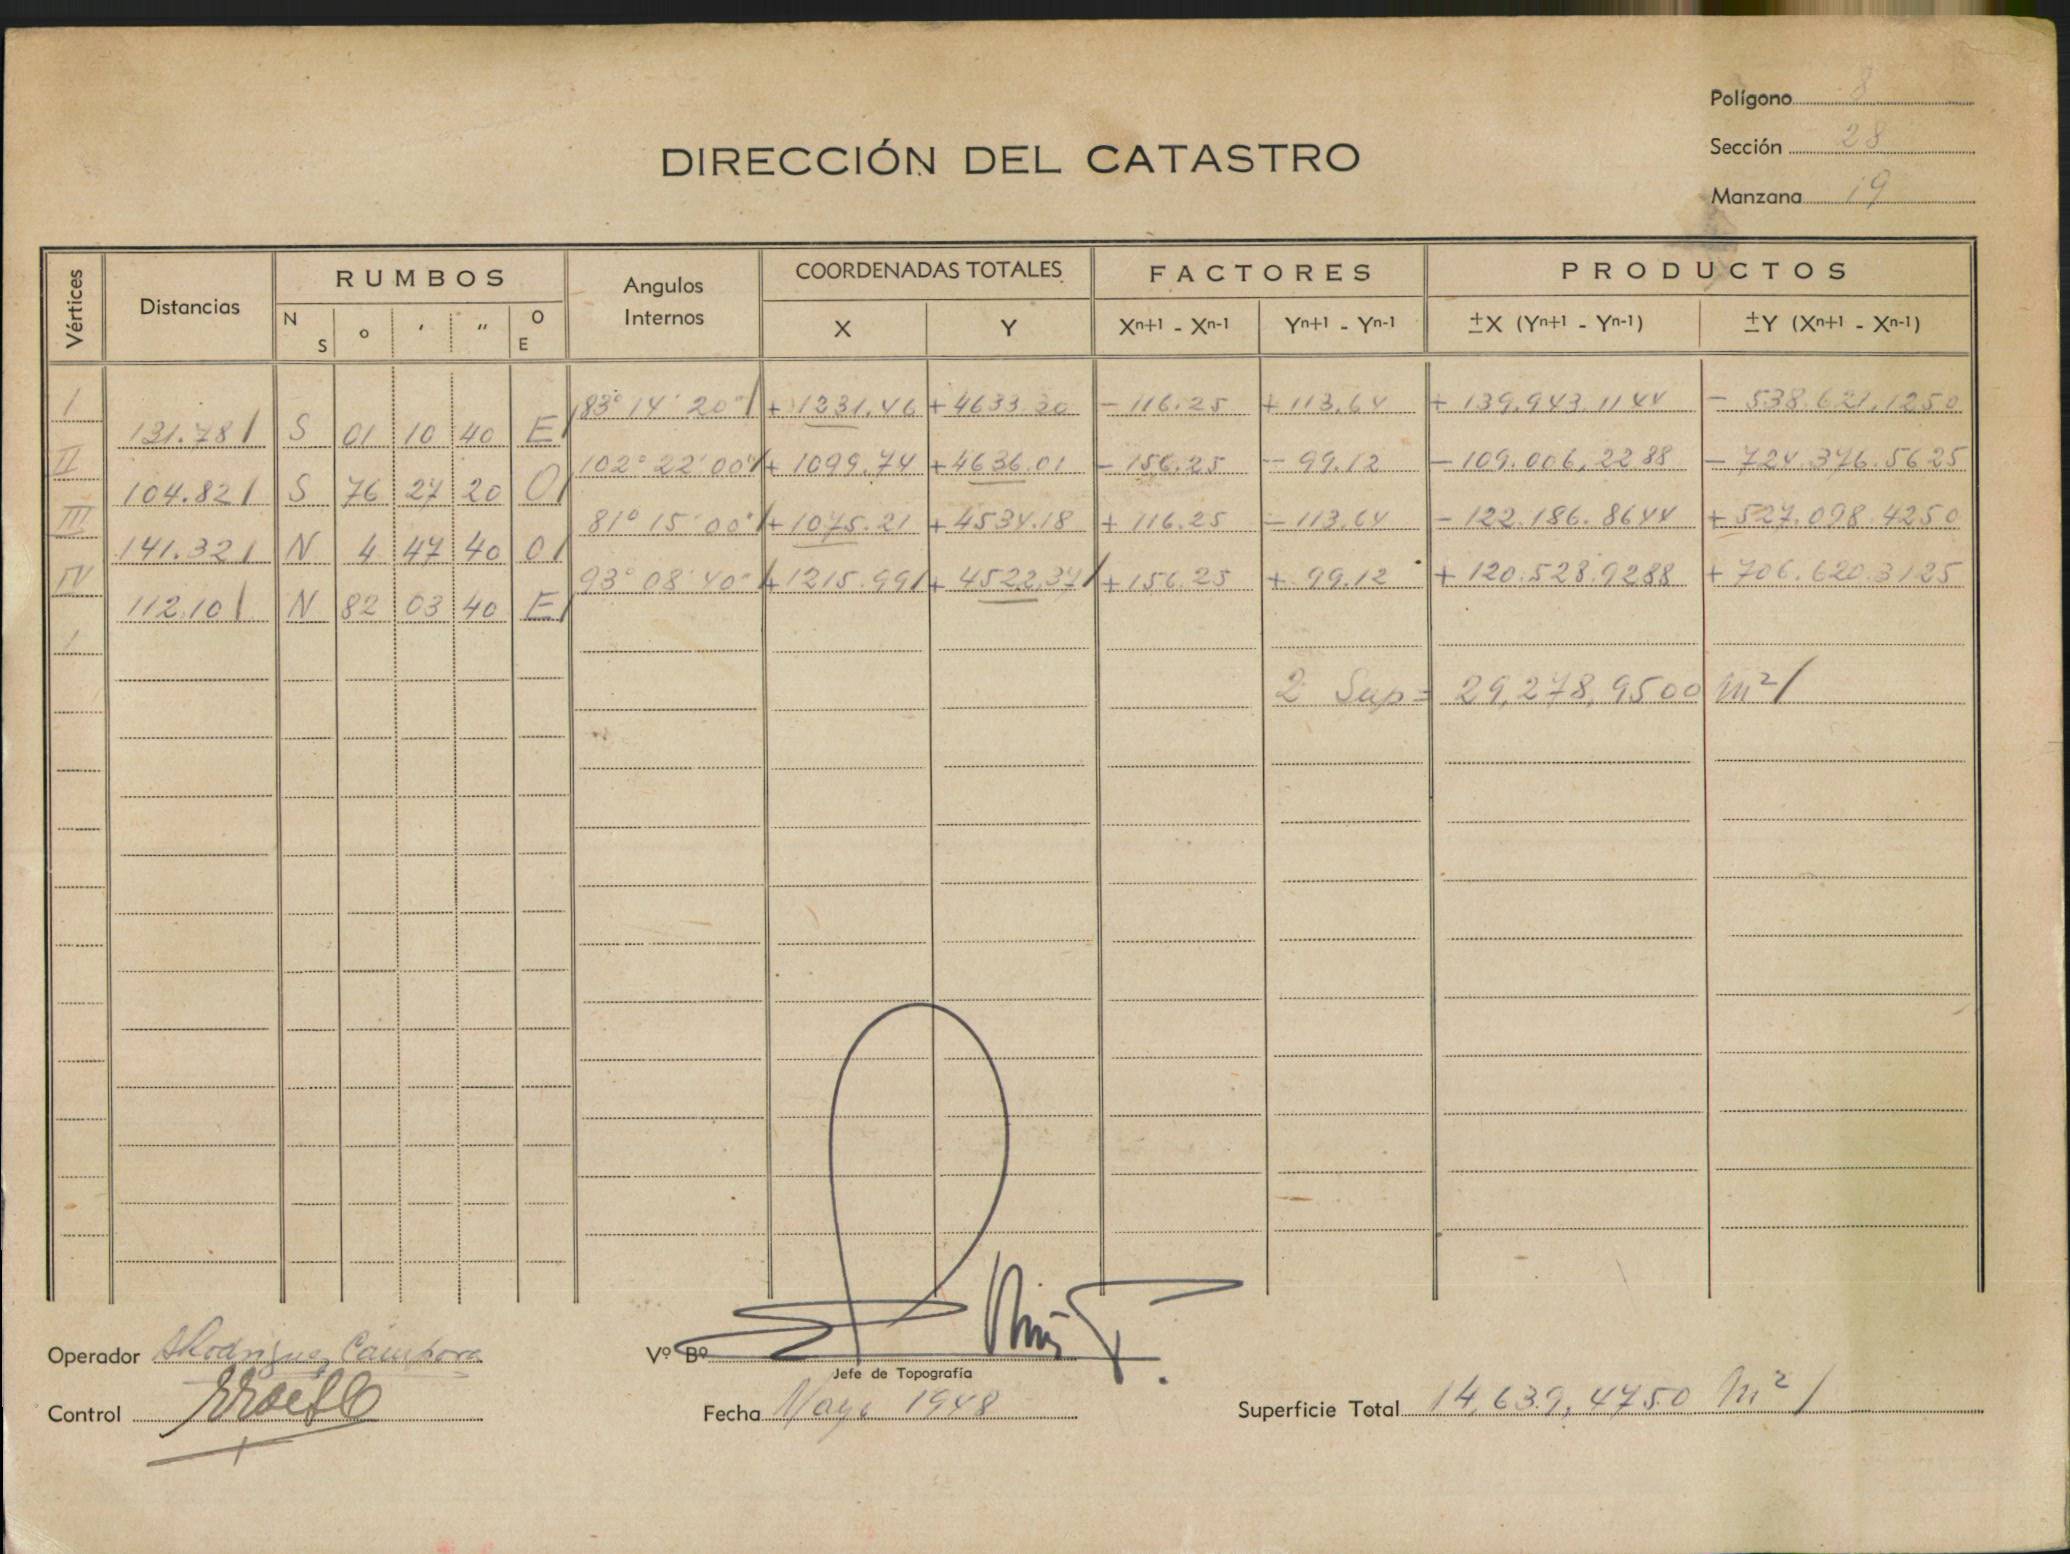 Polígono 8
DIRECCIÓN DEL CATASTRO
Sección 28
Manzana 19
Vértices Distancias RUMBOS Angulos Internos COORDENADAS TOTALES FACTORES PRODUCTOS
N S ° ' " O E X Y Xⁿ⁺¹ - Xⁿ⁻¹ Yⁿ⁺¹ - Yⁿ⁻¹ ±X (Yⁿ⁺¹ - Yⁿ⁻¹) ±Y (Xⁿ⁺¹ - Xⁿ⁻¹)
I 83° 14' 20" + 1231.46 + 4633.30 - 116.25 + 113.64 + 139.943.1144 - 538.621.1250
131.78 S 01 10 40 E
II 102° 22' 00" + 1099.74 + 4636.01 - 156.25 - 99.12 - 109.006,2288 - 724.376.5625
104.82 S 76 27 20 O
III 81° 15' 00" + 1075.21 + 4534.18 + 116.25 - 113.64 - 122.186.8644 + 527.098.4250
141.32 N 4 47 40 O
IV 93° 08' 40" + 1215.99 + 4522,37 + 156.25 + 99.12 + 120.528.9288 + 706.620.3125
112.10 N 82 03 40 E
I
2 Sup = 29,278,9500 m²
Operador Rodriguez Cámpora
Vº Bº
Jefe de Topografía
Control
Fecha Mayo 1948
Superficie Total 14,639,4750 m²